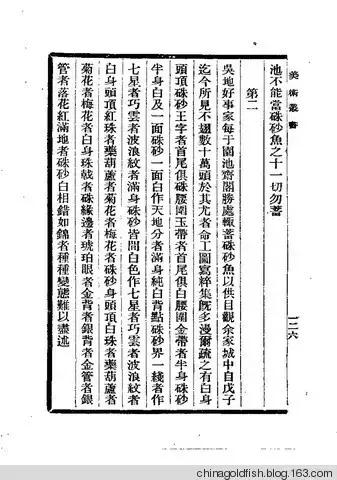 美術叢書
一二六
池不能當硃砂魚之十一切勿蓄
第二
吳地好事家每于園池齋閣勝處輒蓄硃砂魚以供目觀余家城中自戊子
迄今所見不翅數十萬頭於其尤者命工圖寫粹集既多漫爾疏之有白身
頭頂硃砂王字者首尾俱硃腰圍玉帶者首尾俱白腰圍金帶者半身硃砂
半身白及一面硃砂一面白作天地分者滿身純白背點硃砂界一綫者作
七星者巧雲者波浪紋者滿身硃砂皆間白色作七星者巧雲者波浪紋者
白身頭頂紅珠者藥葫蘆者菊花者梅花者硃砂身頭頂白珠者藥葫蘆者
菊花者梅花者白身珠戟者硃緣邊者琥珀眼者金背者銀背者金管者銀
管者落花紅滿地者硃砂白相錯如錦者種種變態難以盡述
chinagoldfish.blog.163.com